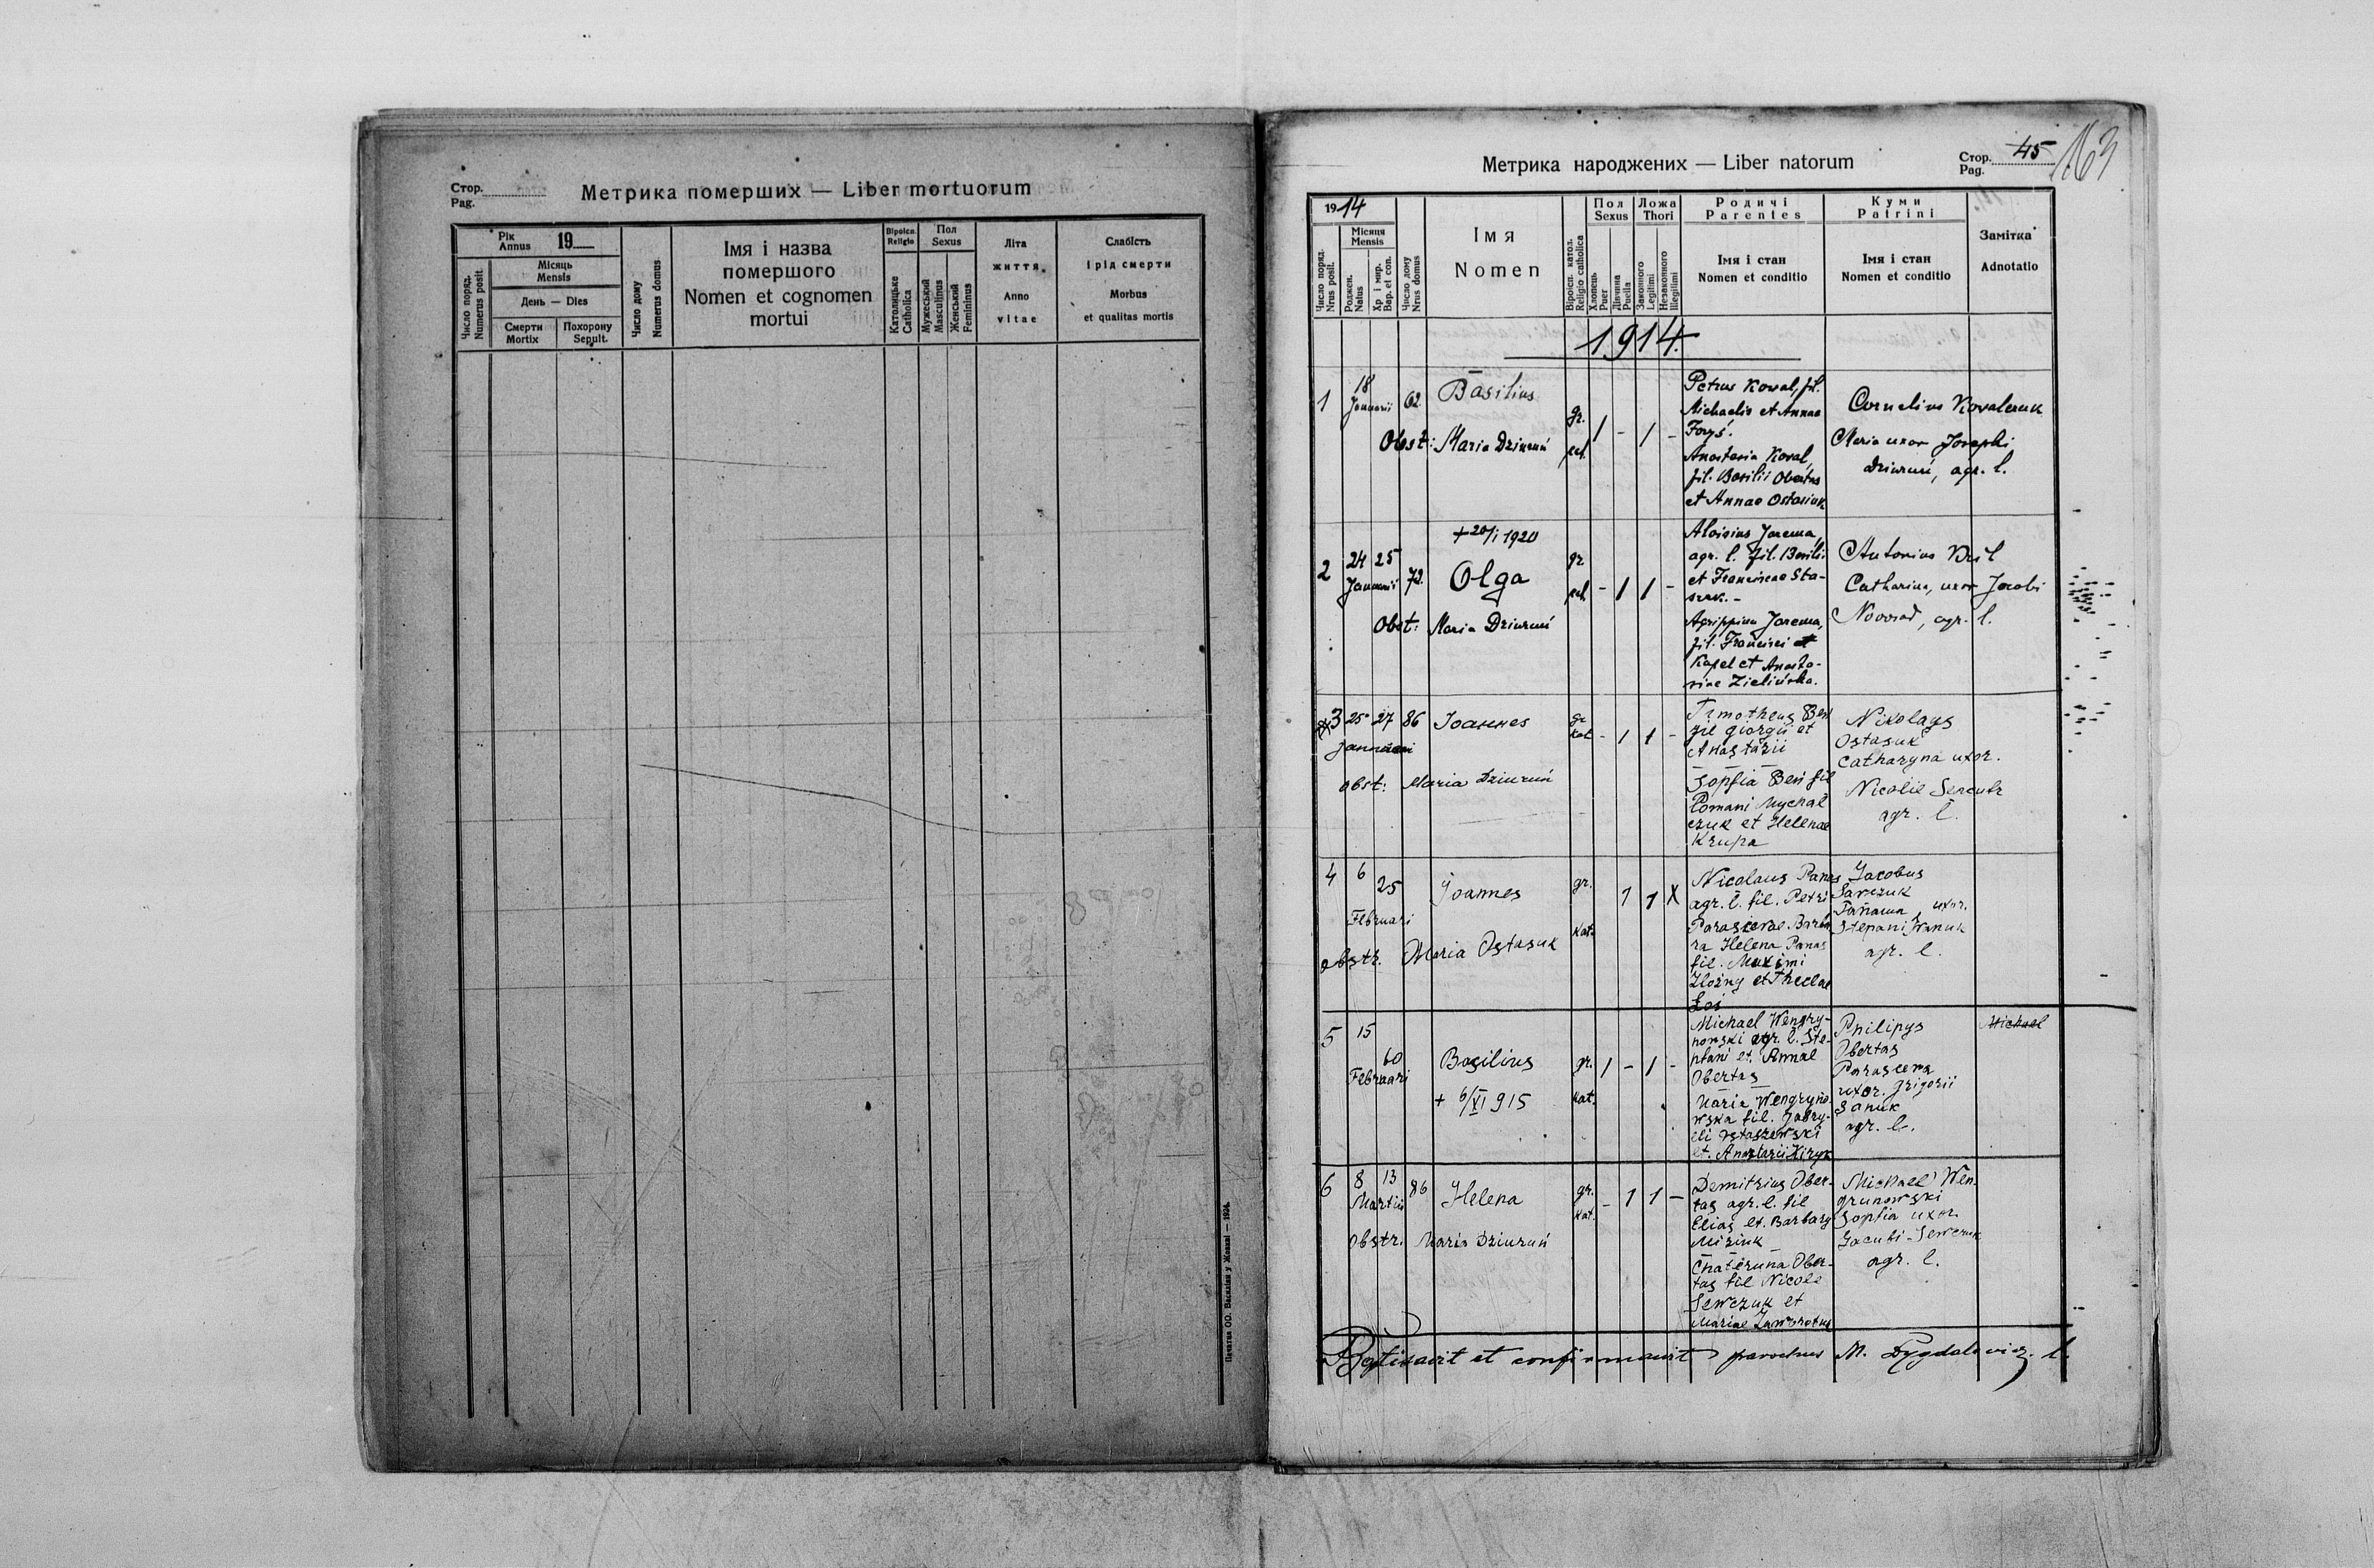 Стор.
Pag.
Метрика померших — Liber mortuorum
Рік
Annus 19
Місяць
Mensis
День — Dies
Смерти
Mortix
Похорону
Sepult.
Число поряд.
Numerus posit.
Число дому
Numerus domus
Імя і назва
помершого
Nomen et cognomen
mortui
Віроісп.
Religio
Католицьке
Catholica
Пол
Sexus
Мужеський
Masculinus
Женський
Femininus
Літа
життя
Anno
vitae
Слабість
і рід смерти
Morbus
et qualitas mortis
Печатня ОО. Василіян у Жовкві — 1924.
Метрика народжених — Liber natorum
Стор.
Pag. 45
163
1914
Місяця
Mensis
Число поряд.
Nrus posit.
Роджен.
Natus
Хр. і мир.
Bap. et con.
Число дому
Nrus domus
Імя
Nomen
Віроісп. катол.
Religio catholica
Пол
Sexus
Хлопець
Puer
Дівчина
Puella
Ложа
Thori
Законного
Legitimi
Незаконного
Illegitimi
Родичі
Parentes
Імя і стан
Nomen et conditio
Куми
Patrini
Імя і стан
Nomen et conditio
Замітка
Adnotatio
1914.
1 18 Januarii 62 Basilius gr. 1 - 1 -
Obst: Maria Dziurun
Petrus Koval, fil.
Michaelis et Annae
Foryś.
Anastasia Koval,
fil. Basilii Obertas
et Annae Ostasiuk
Cornelius Kovalczuk
Maria uxor Josephi
Dziurun, agr. l.
+ 20/I 1920
2 24 25 Januarii 72 Olga gr - 1 1 -
Obst: Maria Dziurun
Aloisius Jarema,
agr. l. fil. Basilii
et Franciscae Sta-
szuk. -
Agrippina Jarema,
fil. Francisci et
Kapel et Anasta-
siae Zielińska.
Antonius Kril
Catharina, uxor Jacobi
Novosad, agr. l.
3 25 27 86 Joannes gr kat - 1 1 -
Januari
obst: Maria Dziurun
Timotheus Beń
fil giorgii et
Anastazii
Sopfia Beń fil
Romani Mychal
czuk et Helenae
Krupa
Nikolays
Ostasuk
Catharyna uxor.
Nicolii
agr. l.
4 6 25 Februari Joannes gr. kat. 1 1 X
obstr. Maria Ostasuk
Nicolaus Panas
agr. l. fil. Petri
Parascewae. Barba
ra Helena Panas
fil. Maximi
et Theclae
Łoś
Jacobus
uxor.
Stepani Iwanuk
agr. l.
5 15 60 Februari Basilius gr. kat. 1 - 1 -
+ 6/XI 915
Michael Wengry-
nowski agr. l. Ste-
phani et. Annae
Obertas
Maria Wengryno
wska fil. Gabry-
eli Ostaszewski
et. Anastazii Kizyk
Philipys
Obertas
Parascewa
uxor. Grigorii
Sanuk
agr. l.
Michael
6 8 13 Martii 86 Helena gr. kat. - 1 1 -
obstr. Maria Dziurun
Demitrius Ober-
tas agr. l. fil
Elias et. Barbary
Miziuk
Chateruna Ober-
tas fil Nicole
Sewczuk et
Mariae Zaworotna
Michael Wen-
grunowski
Sopfia uxor
Jacubi - Sewczuk
agr. l.
Baptisavit et confirmavit parochus M. Dygdalewicz.